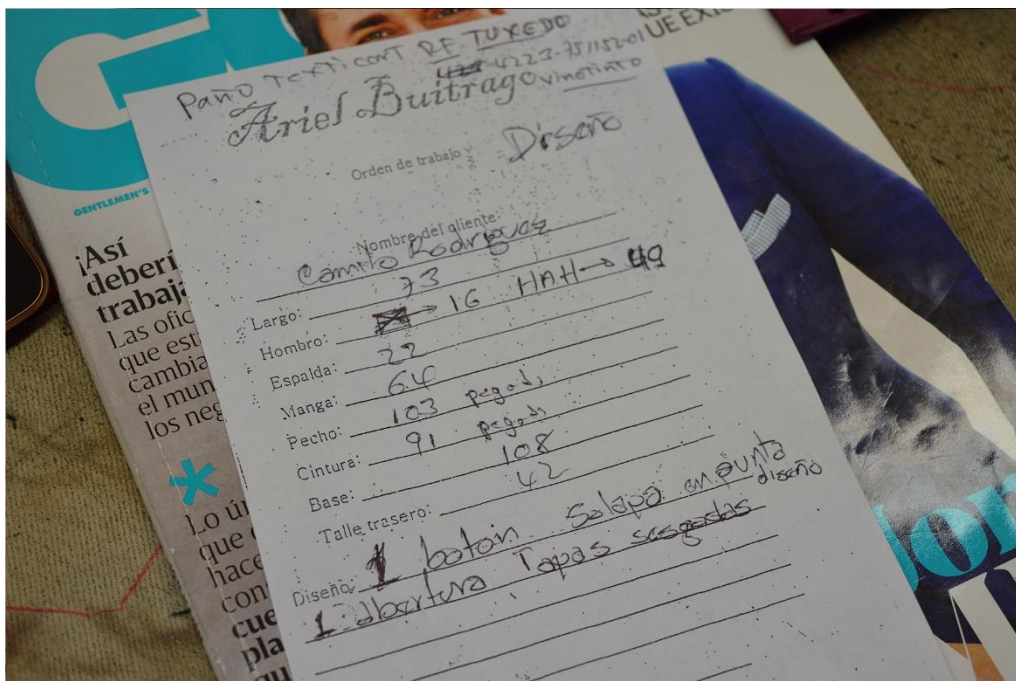 PAÑO TEXTICONT REF TUXEDO
4223-751152-01
Ariel Buitrago VINOTINTO
Orden de trabajo Diseño
Nombre del cliente:
Camilo Rodriguez
Largo: 73
Hombro: → 16 HAH → 49
Espalda: 22
Manga: 64
Pecho: 103 pegado
Cintura: 91 pegado
Base: 108
Talle trasero: 42
Diseño: 1 botón Solapa en punta
diseño
1 abertura Tapas sesgadas
GENTLEMEN'S
¡Así
deberí
trabaja
Las ofic
que est
cambia
el mun
los neg
*
Lo ú
que
hace
con
cue
pla
qu
UE EXI